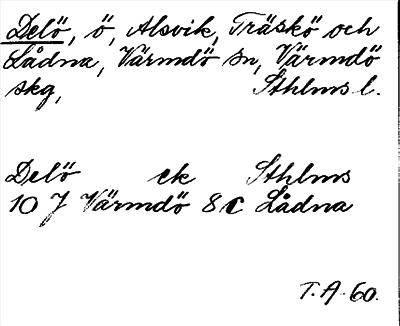 Delö, ö, Alsvik, Träskö och
Lådna, Värmdö sn, Värmdö
skg, Sthlms l.
Delö ek Sthlms
10 J Värmdö 8 C Lådna
T.A. 60.